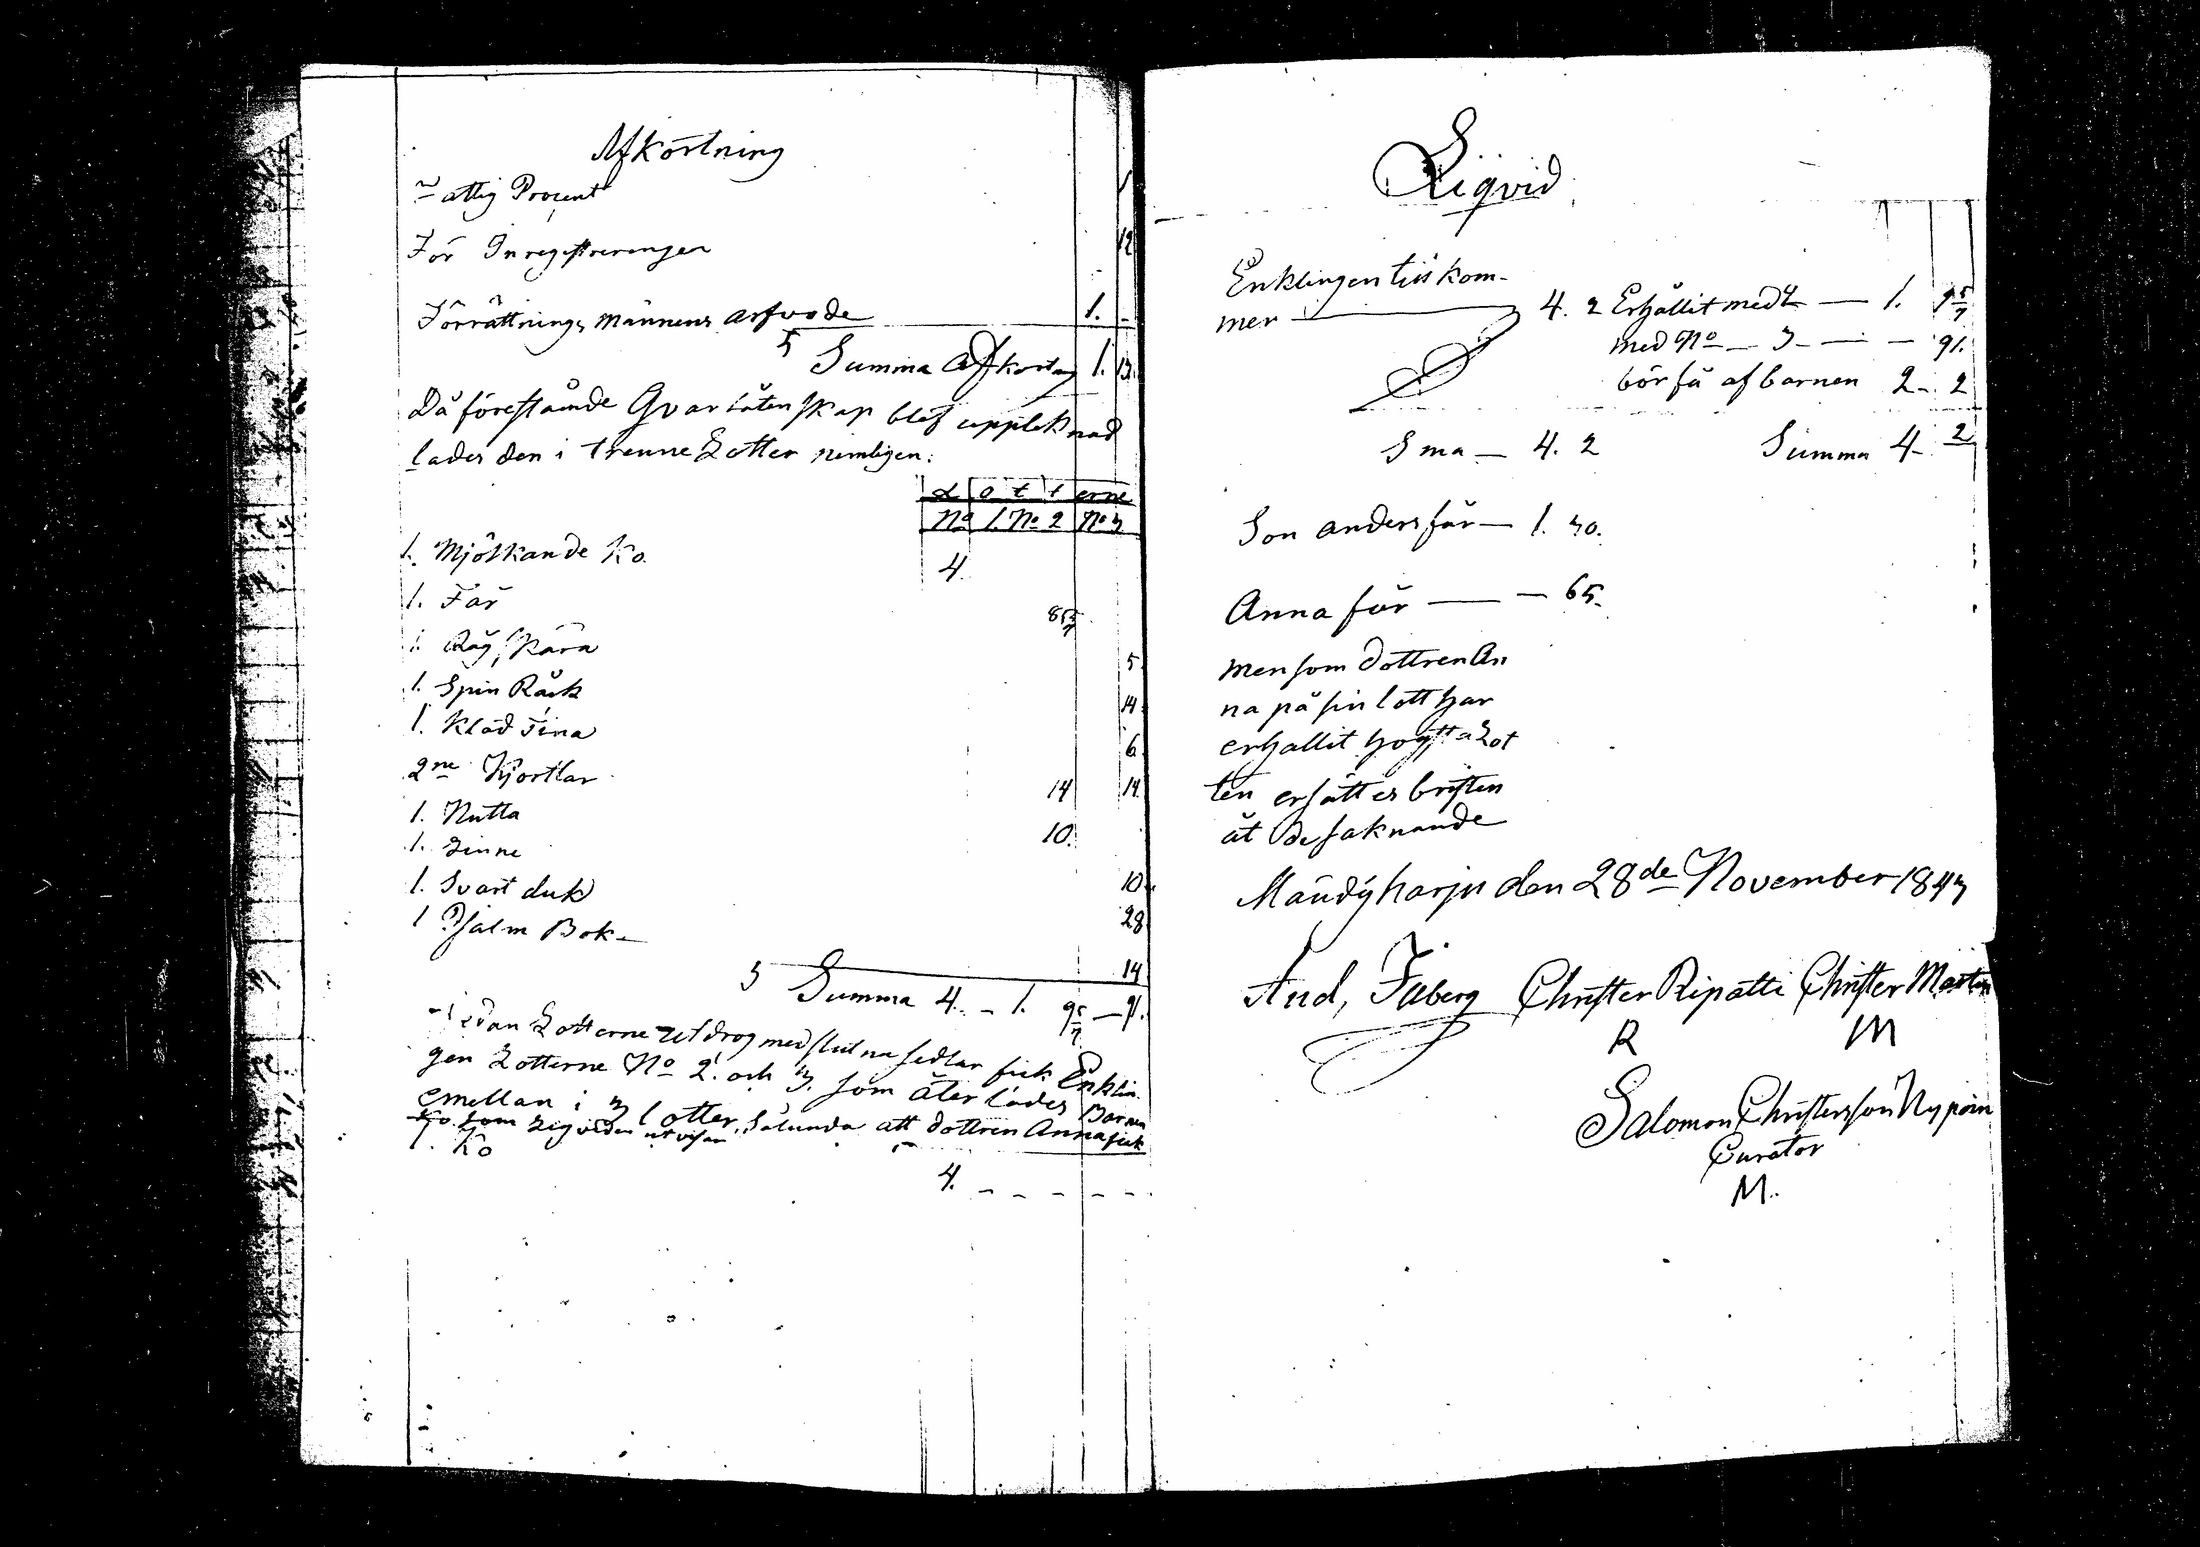 Afkortning
Fattig Procent 1
För Inregistreringen 12
Förrättnings männens arfvode 1. -
Summa Afkortng 1. 13.
Då förestående Qvarlåtenskap blef uppteknad
lades den i trenne Lotter nemligen:
Lotterne
No 1. No 2 No 3
1. Mjölkande Ko. 4.
1. Får 85 5/7
1. Råg Skära 5.
1. Spin Råck 14.
1. Kläd Tina 6
2ne Kjortlar 14 14.
1. Nutta 10.
1. Linne
1. Svart duk 10.
1 Psalm Bok 28
14
Summa 4. - 1. 9 5/7 - 91.
Sedan Lotterne utdrog med slutna sedlar fick Enklin
gen Lotterne No 2. och 3. som åter lades Barnen
emellan i 3 lotter, Sålunda att dottren Anna fick
Ko som Liqviden utvisar
1. Ko
4. - - - - - -
Liqvid
Enklingen till kom-
mer 4. 2 Erhållit med 2 1. 9 5/7
med No 3 91.
bör få af barnen 2 - 2
Sma 4. 2 Summa 4 - 2
Son anders får 1. 30.
Anna får 65.
men som dottren An
na på sin lott har
erhallit högsta Lot
ten ersättes bristen
åt de saknande
Mändyharju den 28de November 1843
And, Faberg Christer Ripatti Christer Martin
R M
Salomon Christersson Nypöin
Curator
M.